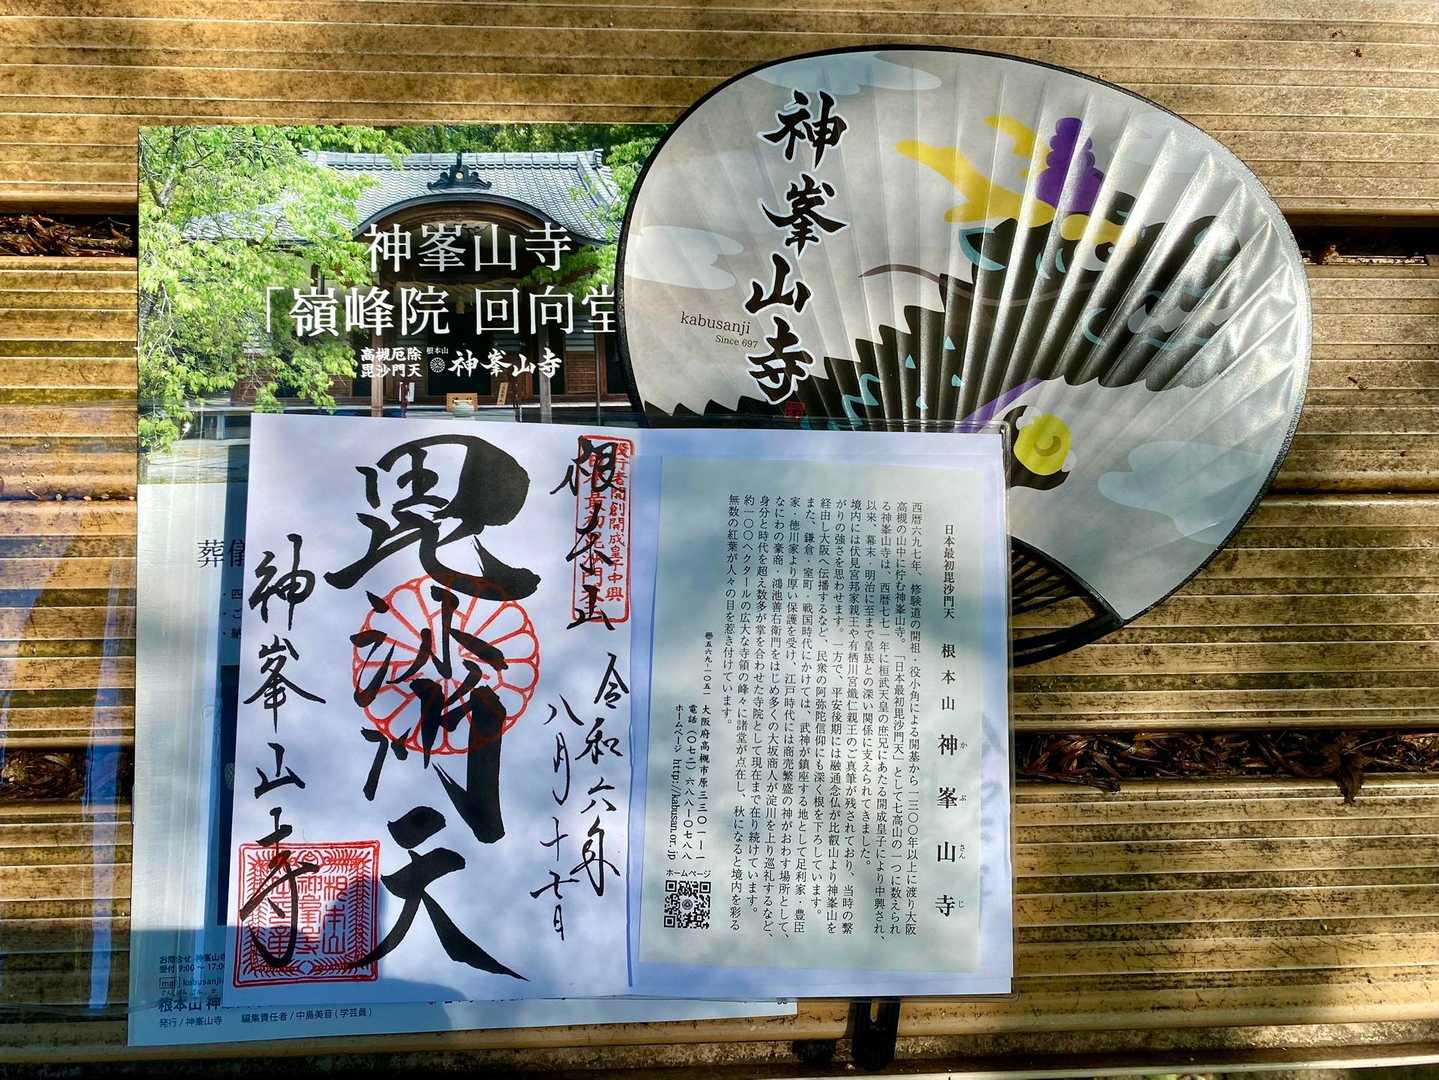 神峯山寺
kabusanji
Since 697
神峯山寺
「嶺峰院 回向堂
高槻厄除
毘沙門天
根本山
神峯山寺
根本山
毘沙門天
神峯山寺
令和六年
八月十七日
役行者開創開成皇子中興
日本最初毘沙門天 根本山 神峯山寺
か ぶ さん じ
西暦六九七年、修験道の開祖・役小角による開基から一三〇〇年以上に渡り大阪
高槻の山中に佇む神峯山寺。「日本最初毘沙門天」として七高山の一つに数えられ
る神峯山寺は、西暦七七一年に桓武天皇の庶兄にあたる開成皇子により中興され、
以来、幕末・明治に至まで皇族との深い関係に支えられてきました。
境内には伏見宮邦家親王や有栖川宮熾仁親王のご真筆が残されており、当時の繋
がりの強さを思わせます。一方で、平安後期には融通念仏が比叡山より神峯山を
経由し大阪へ伝播するなど、民衆の阿弥陀信仰にも深く根を下ろしています。
また、鎌倉・室町・戦国時代にかけては、武神が鎮座する地として足利家・豊臣
家・徳川家より厚い保護を受け、江戸時代には商売繁盛の神がおわす場所として、
なにわの豪商・鴻池善右衛門をはじめ多くの大坂商人が淀川を上り巡礼するなど、
身分と時代を超え数多が掌を合わせた寺院として現在まで在り続けています。
約一〇〇ヘクタールの広大な寺領の峰々に諸堂が点在し、秋になると境内を彩る
無数の紅葉が人々の目を惹き付けています。
〠五六九-一〇五一 大阪府高槻市原三三〇一-一
電話（〇七二）六八八-〇七八八
ホームページ http://kabusan.or.jp
ホームページ
葬儀
お問合せ 神峯山寺
受付 9:00～17:0
mail kabusanji
根本山 神
発行 / 神峯山寺 編集責任者 / 中島美音 ( 学芸員 )